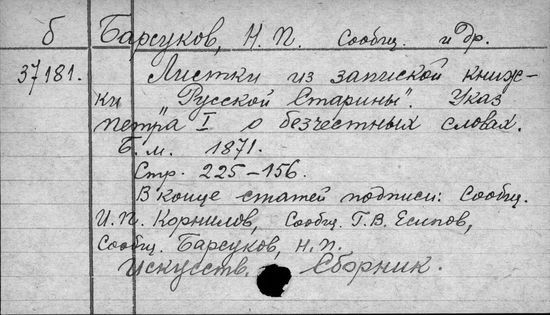 б Барсуков, Н. П. Сообщ. и др.
37181. Листки из записной книж-
ки „Русской Старины“. Указ
Петра I о безчестных словах.
Б. м. 1871.
Стр. 225-156.
В конце статей подписи: Сообщ.
И. П. Корнилов, Сообщ. Г. В. Есипов,
Сообщ. Барсуков, Н. П.
Искусств. Сборник.